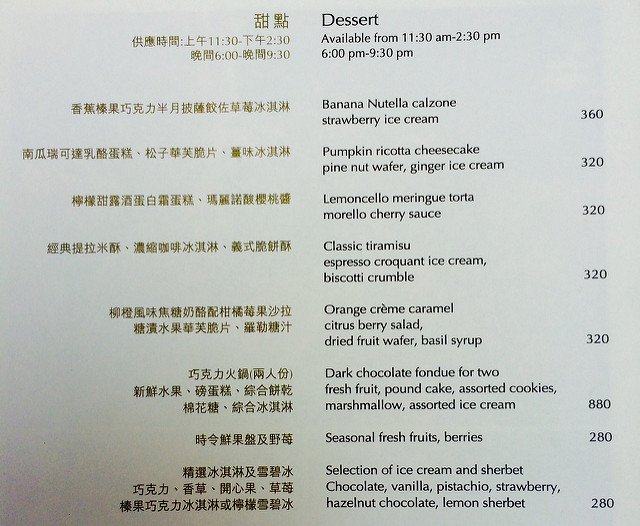 甜點 Dessert
供應時間:上午11:30-下午2:30 Available from 11:30 am-2:30 pm
晚間6:00-晚間9:30 6:00 pm-9:30 pm
香蕉榛果巧克力半月披薩餃佐草莓冰淇淋 Banana Nutella calzone
strawberry ice cream 360
南瓜瑞可達乳酪蛋糕、松子華芙脆片、薑味冰淇淋 Pumpkin ricotta cheesecake
pine nut wafer, ginger ice cream 320
檸檬甜露酒蛋白霜蛋糕、瑪麗諾酸櫻桃醬 Lemoncello meringue torta
morello cherry sauce 320
經典提拉米酥、濃縮咖啡冰淇淋、義式脆餅酥 Classic tiramisu
espresso croquant ice cream,
biscotti crumble 320
柳橙風味焦糖奶酪配柑橘莓果沙拉 Orange crème caramel
糖漬水果華芙脆片、羅勒糖汁 citrus berry salad,
dried fruit wafer, basil syrup 320
巧克力火鍋(兩人份) Dark chocolate fondue for two
新鮮水果、磅蛋糕、綜合餅乾 fresh fruit, pound cake, assorted cookies,
棉花糖、綜合冰淇淋 marshmallow, assorted ice cream 880
時令鮮果盤及野莓 Seasonal fresh fruits, berries 280
精選冰淇淋及雪碧冰 Selection of ice cream and sherbet
巧克力、香草、開心果、草莓 Chocolate, vanilla, pistachio, strawberry,
榛果巧克力冰淇淋或檸檬雪碧冰 hazelnut chocolate, lemon sherbet 280